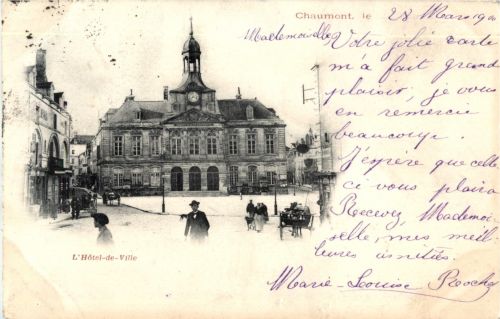 Chaumont, le 28 Mars 190
Mademoiselle
Votre jolie carte
m'a fait grand
plaisir, je vous
en remercie
beaucoup.
J'espere que celle
ci vous plaira
Recevez, Mademoi-
selle, mes meil-
leures amitiés.
Marie-Louise Roche
L'Hôtel-de-Ville